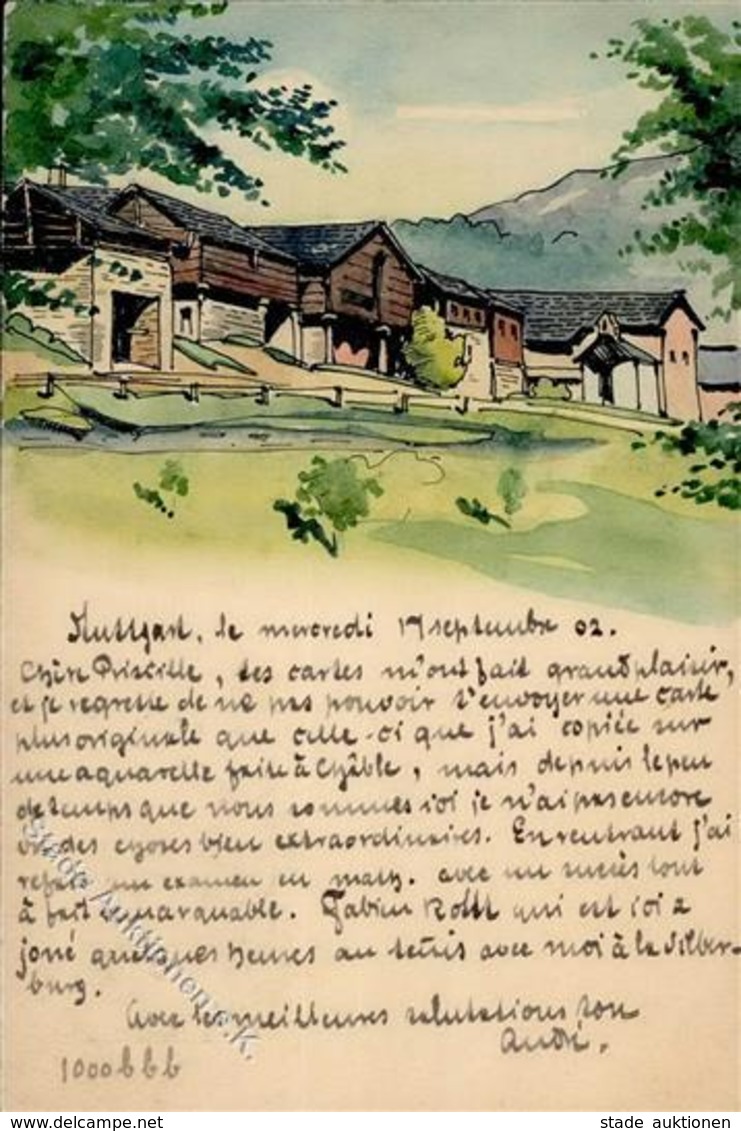 Stuttgart, le mercredi 17 septembre 02.
Chère Priscille, tes cartes m'ont fait grand plaisir,
et je regrette de ne pas pouvoir t'envoyer une carte
plus originale que celle-ci que j'ai copiée sur
une aquarelle faite à Chêble, mais depuis le peu
de temps que nous sommes ici je n'ai pas encore
vu des choses bien extraordinaires. En rentrant j'ai
refait un examen en math. avec un succès tout
à fait remarquable. Fabien qui est ici a
joué quelques heures au tennis avec moi à la Silber-
burg.
Avec les meilleures salutations ton
André.
1000 b b b
Stade Auktionen e.K.
stade auktionen